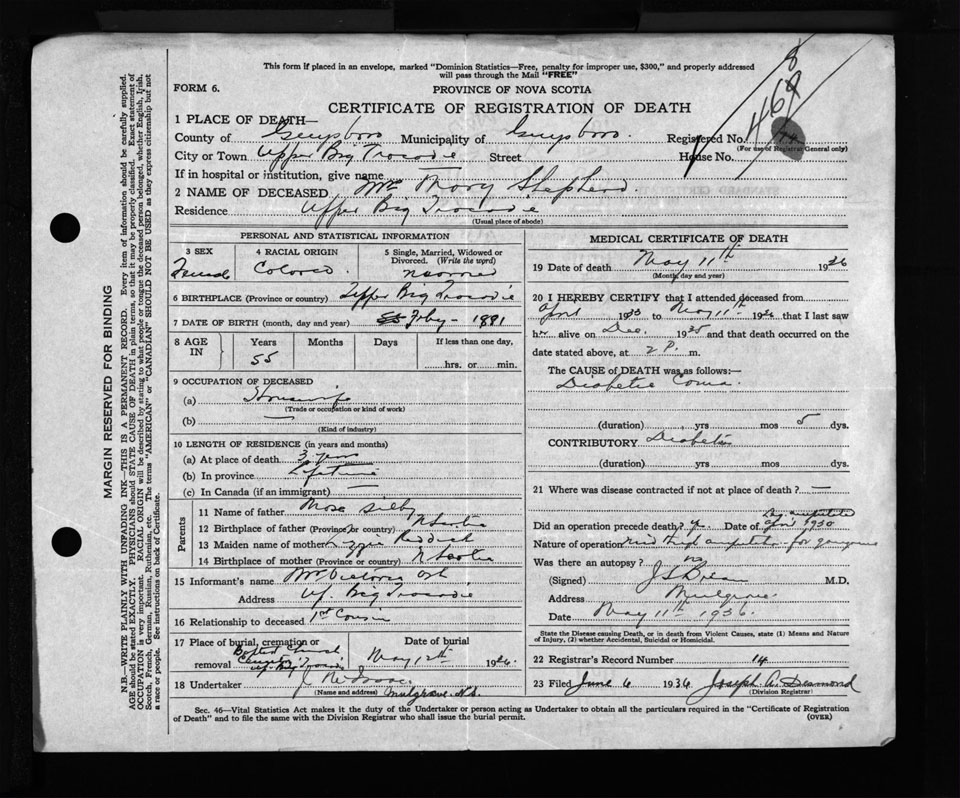 This form if placed in an envelope, marked "Dominion Statistics—Free, penalty for improper use, $300," and properly addressed
will pass through the Mail "FREE"
FORM 6.
PROVINCE OF NOVA SCOTIA
CERTIFICATE OF REGISTRATION OF DEATH
468
1 PLACE OF DEATH—
County of Guysboro Municipality of Guysboro. Registered No.
(For use of Registrar General only)
City or Town Upper Big Tracadie Street House No.
If in hospital or institution, give name
2 NAME OF DECEASED Mrs Mary Stepherd
Residence Upper Big Tracadie
(Usual place of abode)
PERSONAL AND STATISTICAL INFORMATION
3 SEX
Female
4 RACIAL ORIGIN
Colored
5 Single, Married, Widowed or
Divorced. (Write the word)
6 BIRTHPLACE (Province or country) Upper Big Tracadie
7 DATE OF BIRTH (month, day and year) Feby - 1881
8 AGE
IN
Years
55
Months
Days
If less than one day,
hrs. or min.
9 OCCUPATION OF DECEASED
(a) Housewife
(Trade or occupation or kind of work)
(b) —
(Kind of industry)
10 LENGTH OF RESIDENCE (in years and months)
(a) At place of death 3 years
(b) In province Lifetime
(c) In Canada (if an immigrant) —
Parents
11 Name of father
12 Birthplace of father (Province or country) N Scotia
13 Maiden name of mother Lizzie Reddick
14 Birthplace of mother (Province or country) N Scotia
15 Informant's name Mrs Victoria
Address Up Big Tracadie
16 Relationship to deceased 1st Cousin
17 Place of burial, cremation or
removal Baptist Church
Up. Big Tracadie
Date of burial
May 12th 1936
18 Undertaker
(Name and address) Mulgrave N.S.
MEDICAL CERTIFICATE OF DEATH
19 Date of death May 11th 1936
(Month, day and year)
20 I HEREBY CERTIFY that I attended deceased from
April 1930 to May 11th 1936 that I last saw
her alive on Dec. 1935 and that death occurred on the
date stated above, at 2 P. m.
The CAUSE of DEATH was as follows:—
Diabetic Coma.
(duration) yrs mos 5 dys.
CONTRIBUTORY Diabetes
(duration) yrs mos dys.
21 Where was disease contracted if not at place of death? —
Did an operation precede death? Yes Date of April 1930
Nature of operation Mid thigh for gangrene
Was there an autopsy? no
(Signed) M.D.
Address Mulgrave
Date May 11th 1936.
State the Disease causing Death, or in death from Violent Causes, state (1) Means and Nature
of Injury, (2) whether Accidental, Suicidal or Homicidal.
22 Registrar's Record Number 14
23 Filed June 6 1936 Joseph A. Desmond
(Division Registrar)
Sec. 46—Vital Statistics Act makes it the duty of the Undertaker or person acting as Undertaker to obtain all the particulars required in the "Certificate of Registration
of Death" and to file the same with the Division Registrar who shall issue the burial permit.
(OVER)
MARGIN RESERVED FOR BINDING
N.B.—WRITE PLAINLY WITH UNFADING INK—THIS IS A PERMANENT RECORD. Every item of information should be carefully supplied.
AGE should be stated EXACTLY. PHYSICIANS should STATE CAUSE OF DEATH in plain terms, so that it may be properly classified. Exact statement of
OCCUPATION is very important. RACIAL ORIGIN will be described by stating to what people or tongue the deceased person belonged, whether English, Irish,
Scotch, French, German, Russian, Ruthenian, etc. The terms "AMERICAN" or "CANADIAN" SHOULD NOT BE USED as they express citizenship but not
a race or people. See instructions on back of Certificate.